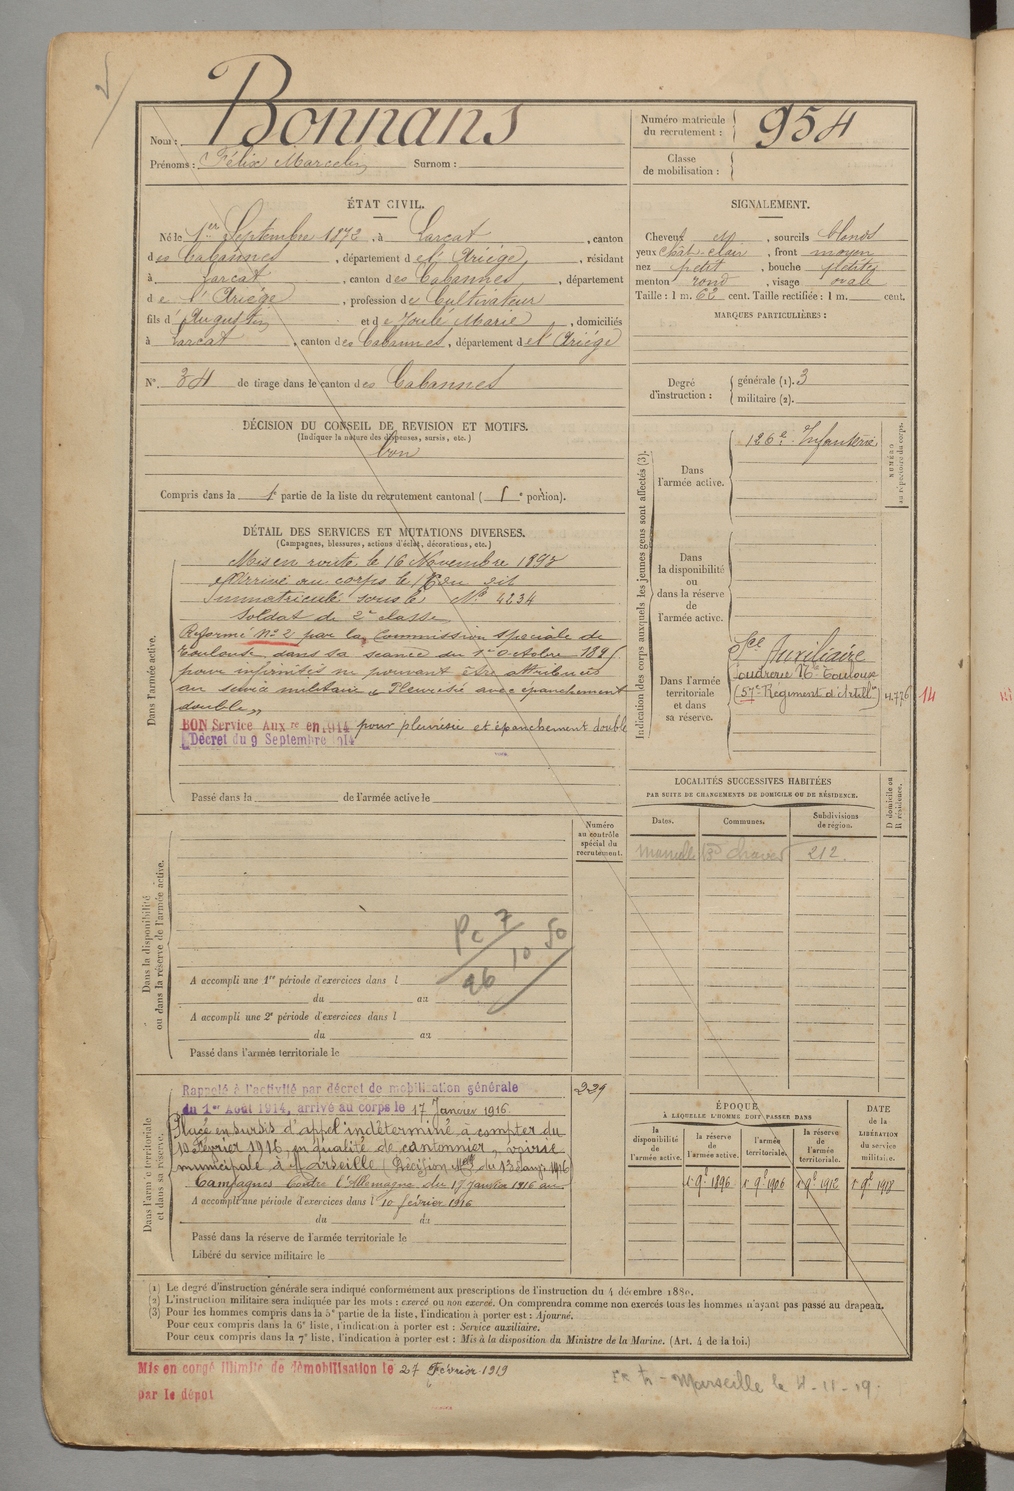 Bonnans
Nom :
Prénoms : Félix Marcelin Surnom :
Numéro matricule du recrutement : 954
Classe de mobilisation :
ÉTAT CIVIL.
Né le 1er Septembre 1872, à Larcat, canton
des Cabannes, département de l'Ariège, résidant
à Larcat, canton des Cabannes, département
de l'Ariège, profession de Cultivateur
fils d'Augustin et de Joulé Marie, domiciliés
à Larcat, canton des Cabannes, département de l'Ariège
N° 34 de tirage dans le canton des Cabannes
SIGNALEMENT.
Cheveux, sourcils blonds
yeux chât-clair, front moyen
nez petit, bouche petite
menton rond, visage ovale
Taille : 1 m. 62 cent. Taille rectifiée : 1 m. cent.
MARQUES PARTICULIÈRES :
Degré d'instruction : générale (1). 3
militaire (2).
DÉCISION DU CONSEIL DE REVISION ET MOTIFS.
(Indiquer la nature des dispenses, sursis, etc.)
bon
Compris dans la 1e partie de la liste du recrutement cantonal ( 1e portion).
DÉTAIL DES SERVICES ET MUTATIONS DIVERSES.
(Campagnes, blessures, actions d'éclat, décorations, etc.)
Dans l'armée active.
Mis en route le 16 Novembre 1893
Arrivé au corps le dit
Immatriculé sous le No 4234
Soldat de 2e classe
Réformé No 2 par la Commission spéciale de
Toulouse dans sa séance du 1er Octobre 1895
pour infirmités ne pouvant être attribuées
au service militaire "Pleurésie avec épanchement
double"
BON Service Auxre en 1914 pour pleurésie et épanchement double
Décret du 9 Septembre 1914
Passé dans la de l'armée active le
Indication des corps auxquels les jeunes gens sont affectés (3).
Dans l'armée active.
126e Infanterie
NUMÉRO au répertoire du corps.
Dans la disponibilité ou dans la réserve de l'armée active.
Dans l'armée territoriale et dans sa réserve.
Sce Auxiliaire
Poudrerie Nle Toulouse
(57e Régiment d'Artillie) 4.776 14
LOCALITÉS SUCCESSIVES HABITÉES
PAR SUITE DE CHANGEMENTS DE DOMICILE OU DE RÉSIDENCE.
Dates. Communes. Subdivisions de région. D domicile ou R résidence.
Marseille Bd Chave 212
Numéro au contrôle spécial du recrutement.
Dans la disponibilité ou dans la réserve de l'armée active.
Pc 7 10 50
26
A accompli une 1re période d'exercices dans l
du au
A accompli une 2e période d'exercices dans l
du au
Passé dans l'armée territoriale le
Dans l'armée territoriale et dans sa réserve.
Rappelé à l'activité par décret de mobilisation générale 239
du 1er Août 1914, arrivé au corps le 17 Janvier 1916.
Placé en sursis d'appel indéterminé à compter du
10 Février 1916, en qualité de cantonnier, voirie
municipale à Marseille (Décision Melle du 13 Janv. 1916)
Campagnes Contre l'Allemagne du 17 janvier 1916 au
A accompli une période d'exercices dans l 10 février 1916
du au
Passé dans la réserve de l'armée territoriale le
Libéré du service militaire le
ÉPOQUE
À LAQUELLE L'HOMME DOIT PASSER DANS
la disponibilité de l'armée active. la réserve de l'armée active. l'armée territoriale. la réserve de l'armée territoriale. DATE de la LIBÉRATION du service militaire.
1er 9bre 1896 1er 9bre 1906 1er 9bre 1912 1er 9bre 1918
(1) Le degré d'instruction générale sera indiqué conformément aux prescriptions de l'instruction du 4 décembre 1880.
(2) L'instruction militaire sera indiquée par les mots : exercé ou non exercé. On comprendra comme non exercés tous les hommes n'ayant pas passé au drapeau.
(3) Pour les hommes compris dans la 5e partie de la liste, l'indication à porter est : Ajourné.
Pour ceux compris dans la 6e liste, l'indication à porter est : Service auxiliaire.
Pour ceux compris dans la 7e liste, l'indication à porter est : Mis à la disposition du Ministre de la Marine. (Art. 4 de la loi.)
Mis en congé illimité de démobilisation le 27 Février 1919
par le dépôt
Marseille le 4-11-19